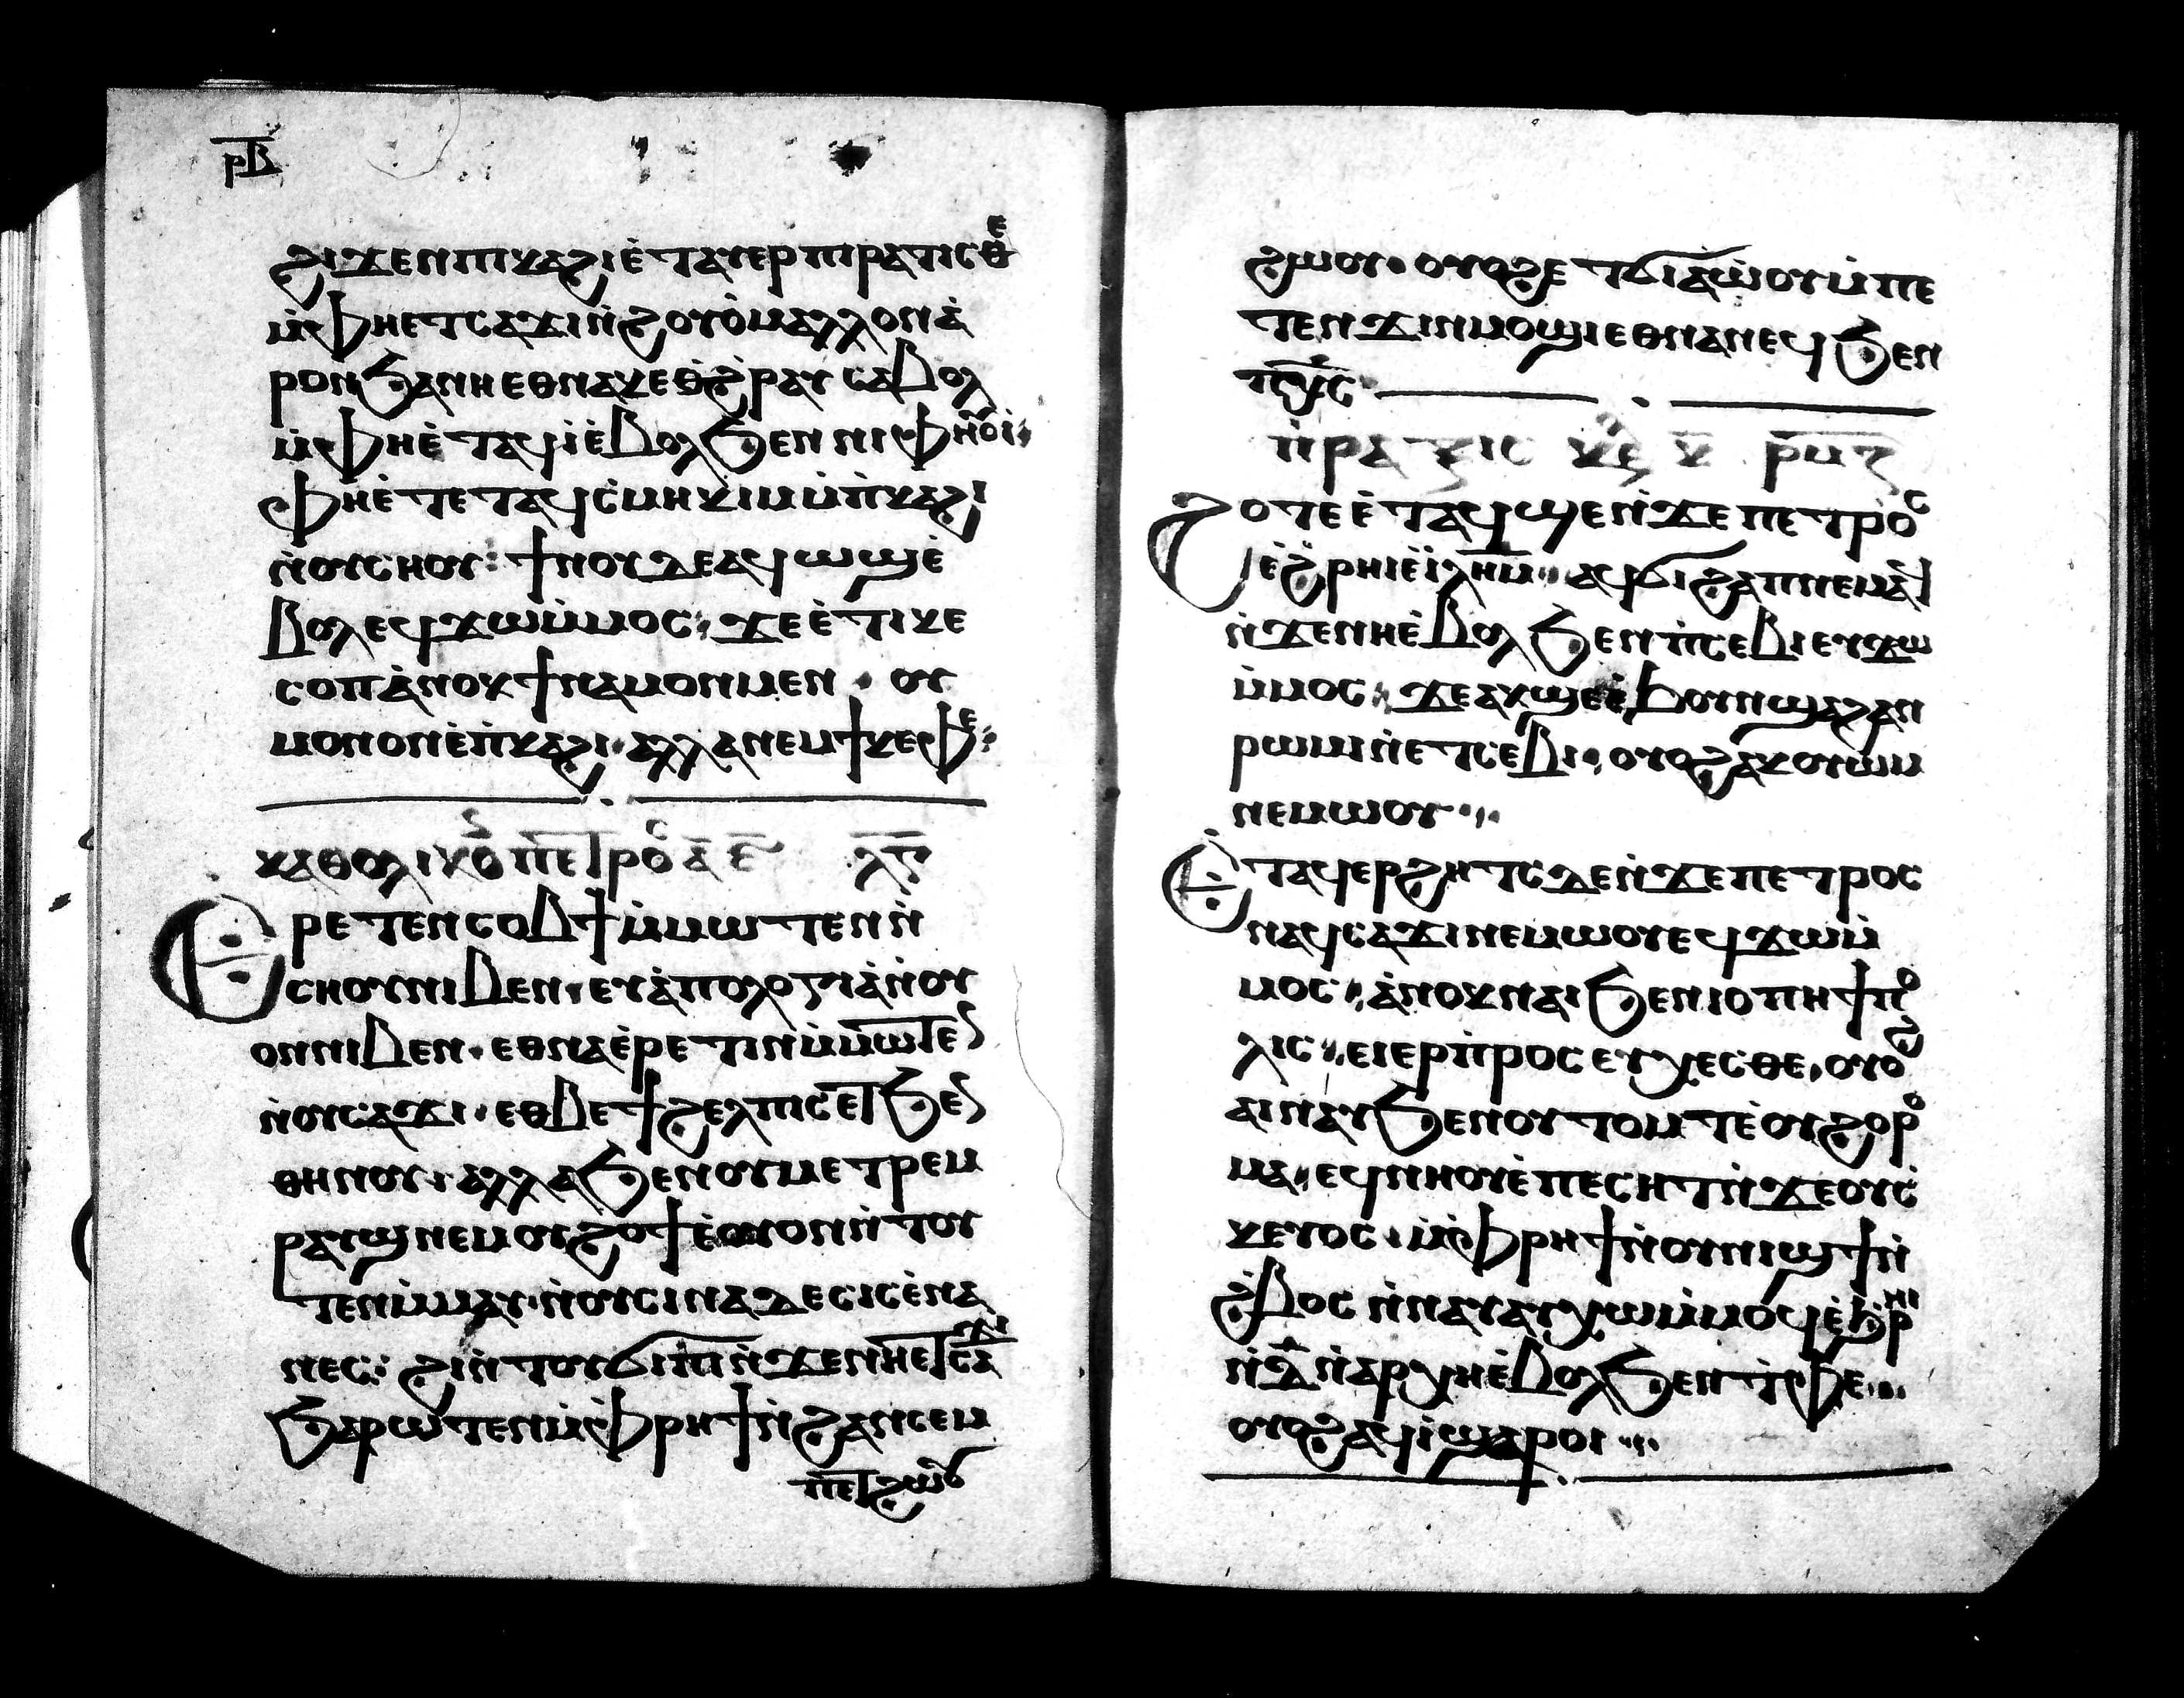 ⲣⲃ
ϩⲓϫⲉⲛⲡⲓⲕⲁϩⲓⲉ̀ⲧⲁⲩⲉⲣⲡⲓⲣⲁⲧⲓⲥⲑⲉ
ⲙ̀ⲫⲏⲉⲧⲥⲁϫⲓⲛ̀ϩⲟⲩⲟ̀ⲙⲁⲗⲗⲟⲛⲁ̀
ⲣⲟⲛϧⲁⲛⲏⲉⲑⲛⲁⲭⲉⲑϩ̀ⲣⲁⲩⲥⲁⲃⲟⲗ
ⲙ̀ⲫⲏⲉ̀ⲧⲁϥⲓ̀ⲉ̀ⲃⲟⲗϧⲉⲛⲛⲓⲫⲏⲟⲩⲓ̀
ⲫⲏⲉ̀ⲧⲉⲧⲁϥⲥ̀ⲙⲏⲕⲓⲙⲙ̀ⲡ̀ⲕⲁϩⲓ
ⲛ̀ⲟⲩⲥⲏⲟⲩ ϯⲛⲟⲩⲇⲉⲁϥⲱϣⲉ̀
ⲃⲟⲗⲉϥϫⲱⲙ̀ⲙⲟⲥ ϫⲉⲉ̀ⲧⲓⲕⲉ
ⲥⲟⲡⲁ̀ⲛⲟⲕϯⲛⲁⲙⲟⲛⲙⲉⲛ ⲟⲩ
ⲙⲟⲛⲟⲛⲉ̀ⲡ̀ⲕⲁϩⲓ ⲁⲗⲗⲁⲛⲉⲙϯⲕⲉⲫⲉ
ⲕⲁⲑⲟⲗⲓⲕⲟ ⲡⲉⲧⲣⲟⲥ ⲁ̅ ⲉ̅ ⲗ̅ⲅ̅
Ⲉⲣⲉⲧⲉⲛⲥⲟⲃϯⲙ̀ⲙⲱⲧⲉⲛⲛ̀
ⲥⲏⲟⲩⲛⲓⲃⲉⲛ ⲉⲩⲁ̀ⲡⲟⲗⲟⲅⲓⲁⲛ̀ⲟⲩ
ⲟⲛⲛⲓⲃⲉⲛ ⲉⲑⲛⲁⲉ̀ⲣⲉⲧⲓⲛⲙ̀ⲙⲱⲧⲉⲛ
ⲛ̀ⲟⲩⲥⲁϫⲓ ⲉⲑⲃⲉϯϩⲉⲗⲡⲓⲥⲉⲧϧⲉⲛ
ⲑⲏⲛⲟⲩ ⲁⲗⲗⲁϧⲉⲛⲟⲩⲙⲉⲧⲣⲉⲙ
ⲣⲁⲩϣⲛⲉⲙⲟⲩϩⲟϯⲉ̀ⲟⲩⲟⲛⲛ̀ⲧⲟⲩ
ⲧⲉⲛⲙ̀ⲙⲁⲩ ⲛ̀ⲟⲩⲥⲓⲛⲁⲇⲉⲥⲓⲥⲉ̀ⲛⲁ
ⲛⲉⲥ ϩⲓⲛ̀ⲧⲟⲩϭⲓϣⲓⲡⲓⲛ̀ϫⲉⲛⲏⲉⲧⲥⲁϫⲓ
ϧⲁⲣⲱⲧⲉⲛⲙ̀ⲫⲣⲏϯⲛ̀ϩⲁⲛⲥⲁⲙ
ⲡⲉⲧϩⲱⲟⲩ
ϩⲱⲟⲩ ⲟⲩⲟϩⲉⲧϭⲓⲁⲱ̀ⲟⲩⲙ̀ⲡⲉ
ⲧⲉⲛϫⲓⲛⲙⲟϣⲓⲉⲑⲛⲁⲛⲉϥϧⲉⲛ
ⲡⲭ̅ⲥ̅
ⲡ̀ⲣⲁⲝⲓⲥ ⲕⲉ ⲕ̅ ⲣⲙⲍ
Ϩⲟⲧⲉⲉ̀ⲧⲁϥϣⲉⲛ̀ϫⲉⲡⲉⲧⲣⲟⲥ
ⲉ̀ϩ̀ⲣⲏⲓⲉ̀ⲓ̀ⲗ̅ⲏ̅ⲙ̅ ⲁϥϭⲓϩⲁⲡⲛⲉⲙⲁϥ
ⲛ̀ϫⲉⲛⲏⲉ̀ⲃⲟⲗϧⲉⲛⲡ̀ⲥⲉⲃⲓⲉⲩϫⲱ
ⲙ̀ⲙⲟⲥ ϫⲉⲁⲕϣⲉⲉ̀ϧⲟⲩⲛϣⲁϩⲁⲛ
ⲣⲱⲙⲓⲛ̀ⲉⲧⲥⲉⲃⲓ ⲟⲩⲟϩⲁⲕⲟⲩⲱⲙ
ⲛⲉⲙⲱⲟⲩ
Ⲉ̀ⲧⲁϥⲉⲣϩⲏⲧⲥⲇⲉⲛ̀ϫⲉⲡⲉⲧⲣⲟⲥ
ⲛⲁϥⲥⲁϫⲓⲛⲉⲙⲱⲟⲩⲉϥϫⲱⲙ̀
ⲙⲟⲥ ⲁ̀ⲛⲟⲕⲛⲁⲓϧⲉⲛⲓⲟⲡⲏϯⲡⲟ
ⲗⲓⲥ ⲉⲓⲉⲣⲡ̀ⲣⲟⲥⲉⲩⲭⲉⲥⲑⲉ ⲟⲩⲟϩ
ⲁⲓⲛⲁⲩϧⲉⲛⲟⲩⲧⲟⲙⲧⲉ̀ⲟⲩϩⲟⲣⲟ
ⲙⲁ ⲉϥⲛⲏⲟⲩⲉ̀ⲡⲉⲥⲏⲧⲛ̀ϫⲉⲟⲩⲥ̀
ⲕⲉⲩⲟⲥ ⲙ̀ⲫⲣⲏϯⲛ̀ⲟⲩⲛⲓϣϯⲛ̀
ϩ̀ⲃⲟⲥ ⲛ̀ⲛⲁⲩⲁⲩⲭⲱⲙ̀ⲙⲟϥⲉ̀ϧⲣⲏⲓ
ⲛ̀ⲇ̅ⲛ̀ⲁⲣⲭⲏⲉ̀ⲃⲟⲗϧⲉⲛⲧ̀ⲫⲉ
ⲟⲩⲟϩⲁϥⲓ̀ϣⲁⲣⲟⲓ